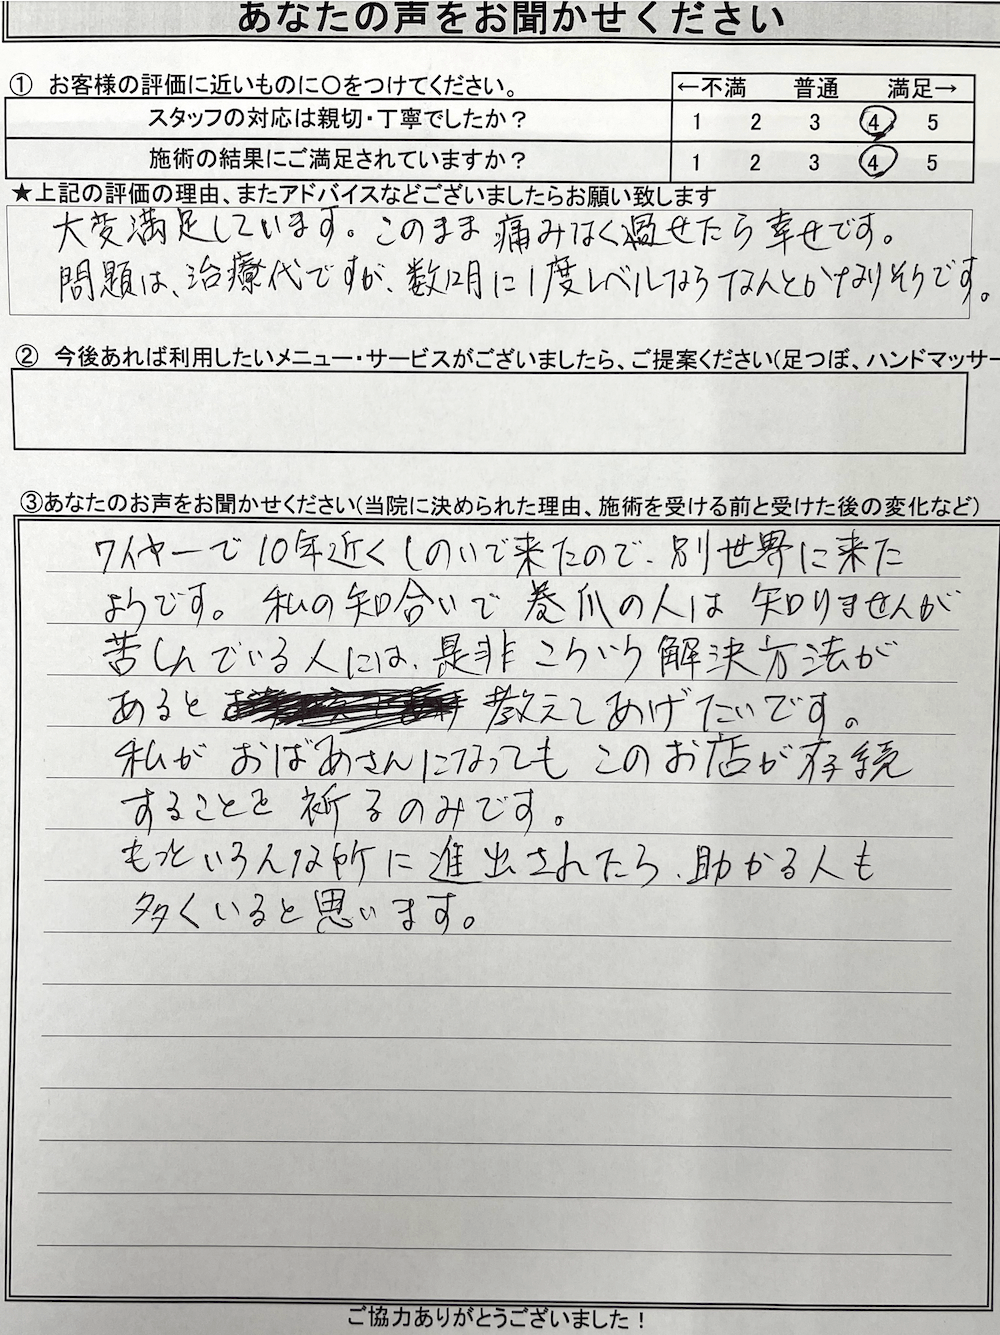 あなたの声をお聞かせください
① お客様の評価に近いものに○をつけてください。 ←不満 普通 満足→
スタッフの対応は親切・丁寧でしたか？ 1 2 3 4 5
施術の結果にご満足されていますか？ 1 2 3 4 5
★上記の評価の理由、またアドバイスなどございましたらお願い致します
大変満足しています。このまま痛みなく過せたら幸せです。
問題は、治療代ですが、数ヶ月に1度レベルならなんとかなりそうです。
② 今後あれば利用したいメニュー・サービスがございましたら、ご提案ください(足つぼ、ハンドマッサー
③あなたのお声をお聞かせください(当院に決められた理由、施術を受ける前と受けた後の変化など)
ワイヤーで10年近くしのいで来たので、別世界に来た
ようです。私の知合いで巻爪の人は知りませんが
苦しんでいる人には、是非こういう解決方法が
あると 教えてあげたいです。
私がおばあさんになってもこのお店が存続
することを祈るのみです。
もっといろんな所に進出されたら、助かる人も
多くいると思います。
ご協力ありがとうございました！